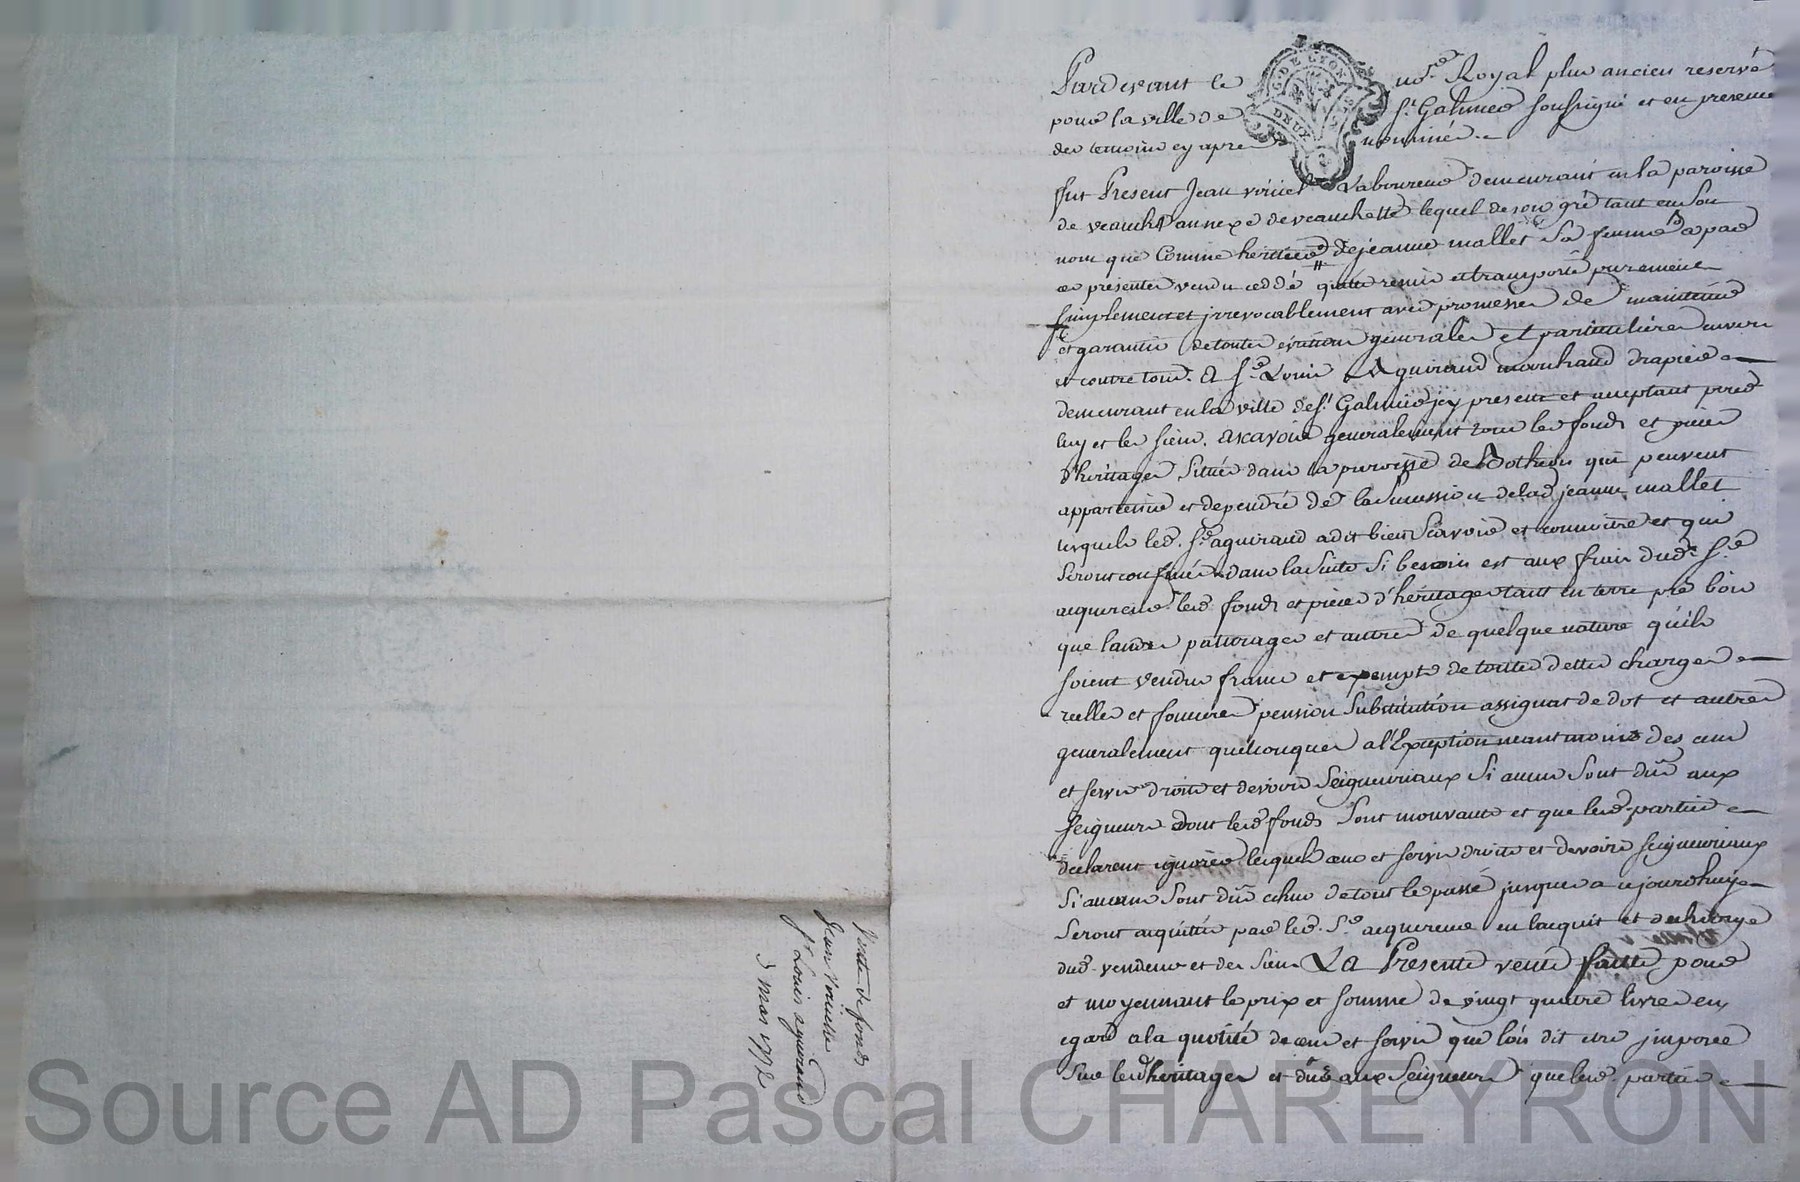 Pardevant le no.re Royal plus ancien reservé
pour la ville de St Galmier soussigné et en presence
des temoins cy apres nommés
G. DE LYON
DEUX
fut Present Jean voiriel Laboureur demeurant en la paroisse
de veauche annexe de veauchette lequel de son gré tant en son
nom que comme heritier de jeanne mallet sa femme a par
ces presentes vendu ceddé quitté remis et transporté purement
simplement et jrrevocablement avec promesse de maintenir
et garantir de toutes evictions generales et particulieres envers
et contre tous. A sr. Louis Aguiraud marchand drapier
demeurant en la ville de St Galmier jcy present et acceptant pour
luy et les siens. Ascavoir generalement tous les fonds et pieces
d'heritages situés dans la paroisse de Botheon qui peuvent
appartenir et dependre de la succession de lad jeanne mallet
lesquels led. sr aguiraud a dit bien scavoir et connoitre et qui
seront confinés dans la suite si besoin est aux frais dud. sr.
acquereur lesd fonds et pieces d'heritages tant en terre pré bois
que landes paturages et autres de quelque nature qu'ils
soient vendus francs et exempts de toutes dettes charges
reelles et foncieres pension substitution assignat de dot et autres
generalement quelconques a l'Exception neantmoins des cens
et servis droits et devoirs seigneuriaux si aucuns sont dûs aux
seigneurs dont lesd fonds sont mouvants et que lesd. parties
declarent ignorer lesquels cens et servis droits et devoirs seigneuriaux
si aucuns sont dûs echus de tout le passé jusques a cejourd'huy
seront acquittés par led. sr. acquereur en l'acquit et decharge
dud. vendeur et des siens La Presente vente faitte pour
et moyennant le prix et somme de vingt quatre livres eu
egard a la quotité de cens et servis que l'on dit etre jmposés
sur lesd heritages et dûs aux seigneurs que lesd. parties
Vente de fonds
Jean Voirielle
Sr Louis aguiraud
3 mars 1772
Source AD Pascal CHAREYRON